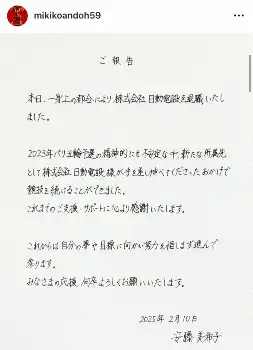 mikikoandoh59
ご報告
本日、一身上の都合により、株式会社日動電設を退職いたし
ました。
2023年パリ五輪予選の精神的にも不安定な中、新たな所属先
として株式会社日動電設様が手を差し伸べてくださったおかげで
競技を続けることができました。
これまでのご支援・サポートに心より感謝いたします。
これからは自分の夢や目標に向かい努力を惜しまず進んで
参ります。
みなさまの応援、何卒よろしくお願いいたします。
2025年 2月10日
安藤 美希子